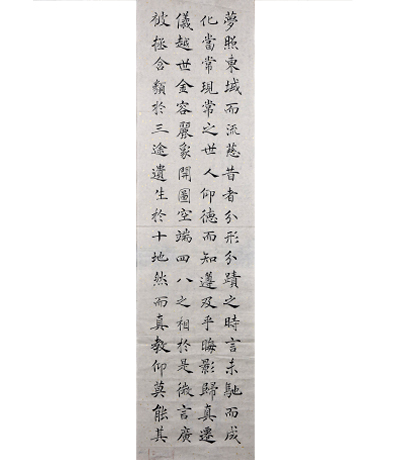 夢照東域而流慈昔者分形分蹟之時言未馳而成
化當常現常之世人仰德而知遵及乎晦影歸真遷
儀越世金容麗象開圖空端四八之相於是微言廣
被拯含類於三途遺生於十地然而真教仰莫能其